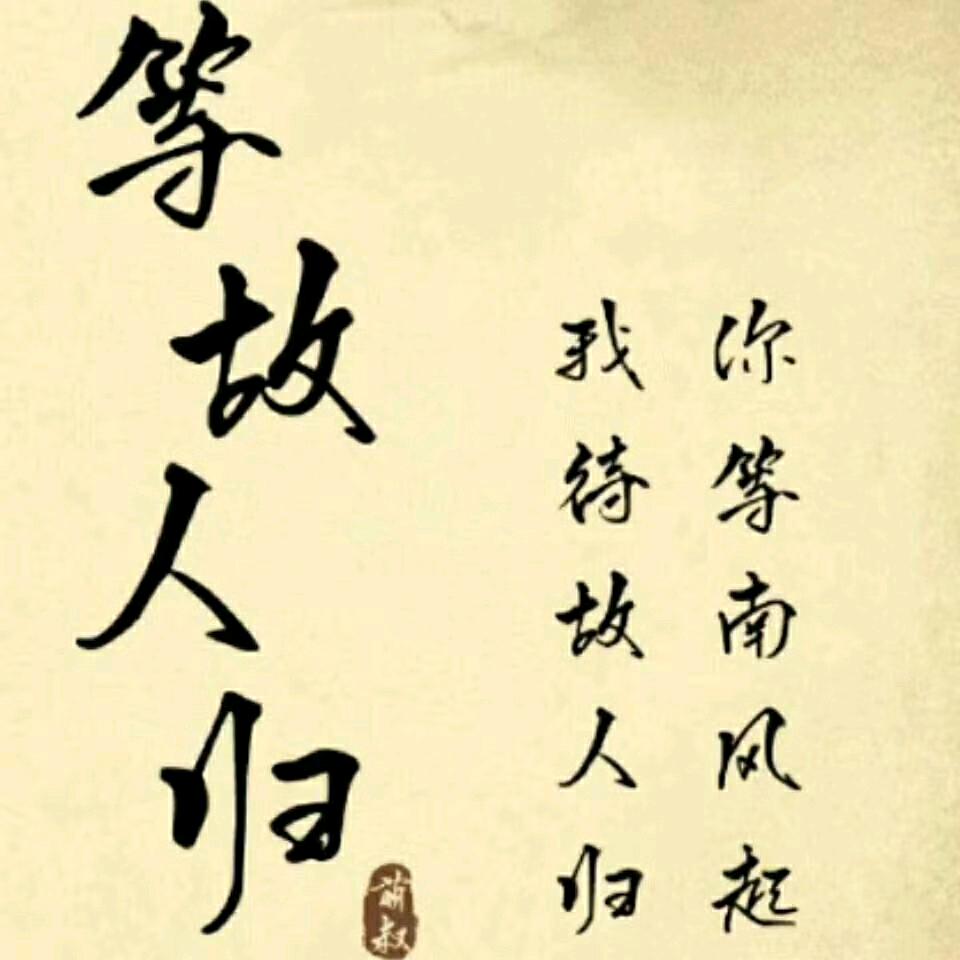 你等南风起
我待故人归
等故人归
萧叔